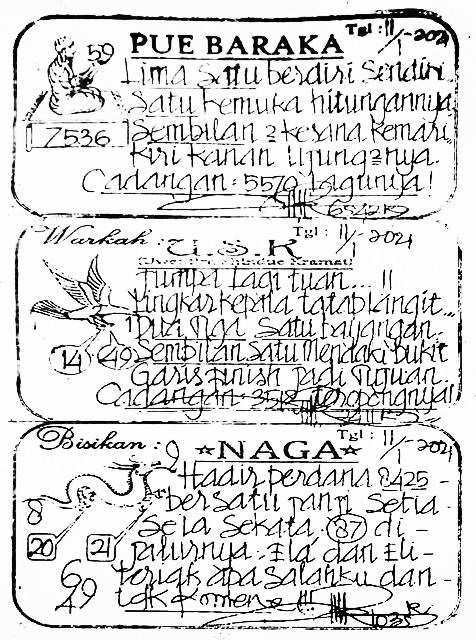 Tgl : 11/1 - 2021
PUE BARAKA
59
Lima Satu berdiri Sendiri
Satu kemuka hitungannya
7536
Sembilan 2 kesana kemari
Kiri kanan Ujung2nya.
Cadangan : 5570 Lagunya!
6542
Warkah :
U.S.K
Tgl : 11/1 - 2021
Jumpa Lagi tuan... !!
Lingkar kepala tatap langit..
Dua Tiga Satu bayangan.
14 49
Sembilan Satu Mendaki bukit
Garis finish jadi Tujuan.
Cadangan : 3518 Teropongnya!
Bisikan :
NAGA
Tgl : 11/1 - 2021
9
Hadir perdana 8425 -
bersatu janji Setia
8
Seia Sekata 87 di -
20 21
jalurnya. Ela dan Eli -
6
teriak apa Salahku dan -
49
tak Komen !!!
1035